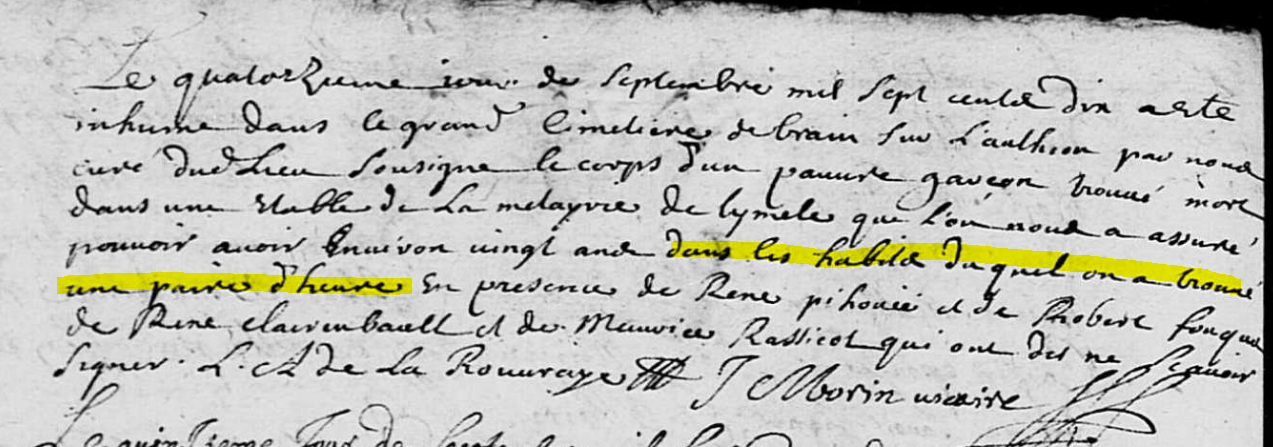 Le quatorzieme iour de Septembre mil Sept cents dix a este
inhume dans le grand Cimetiere de brain Sur L'authion par nous
curé dud Lieu Sousigne le corps d'un pauure garçon trouué mort
dans une Etable de La metayrie de lymele que l'on nous a assuré
pouuoir auoir Enuiron uingt ans dans les habits duquel on a trouué
une paire d'heure En presence de Rene pihouée et de Robert fouque
de Rene clairembault et de Maurice Rassicot qui ont dit ne Scauoir
Signer. L. A de La Rouuraye J Morin uicaire
Le quinzieme Jour de